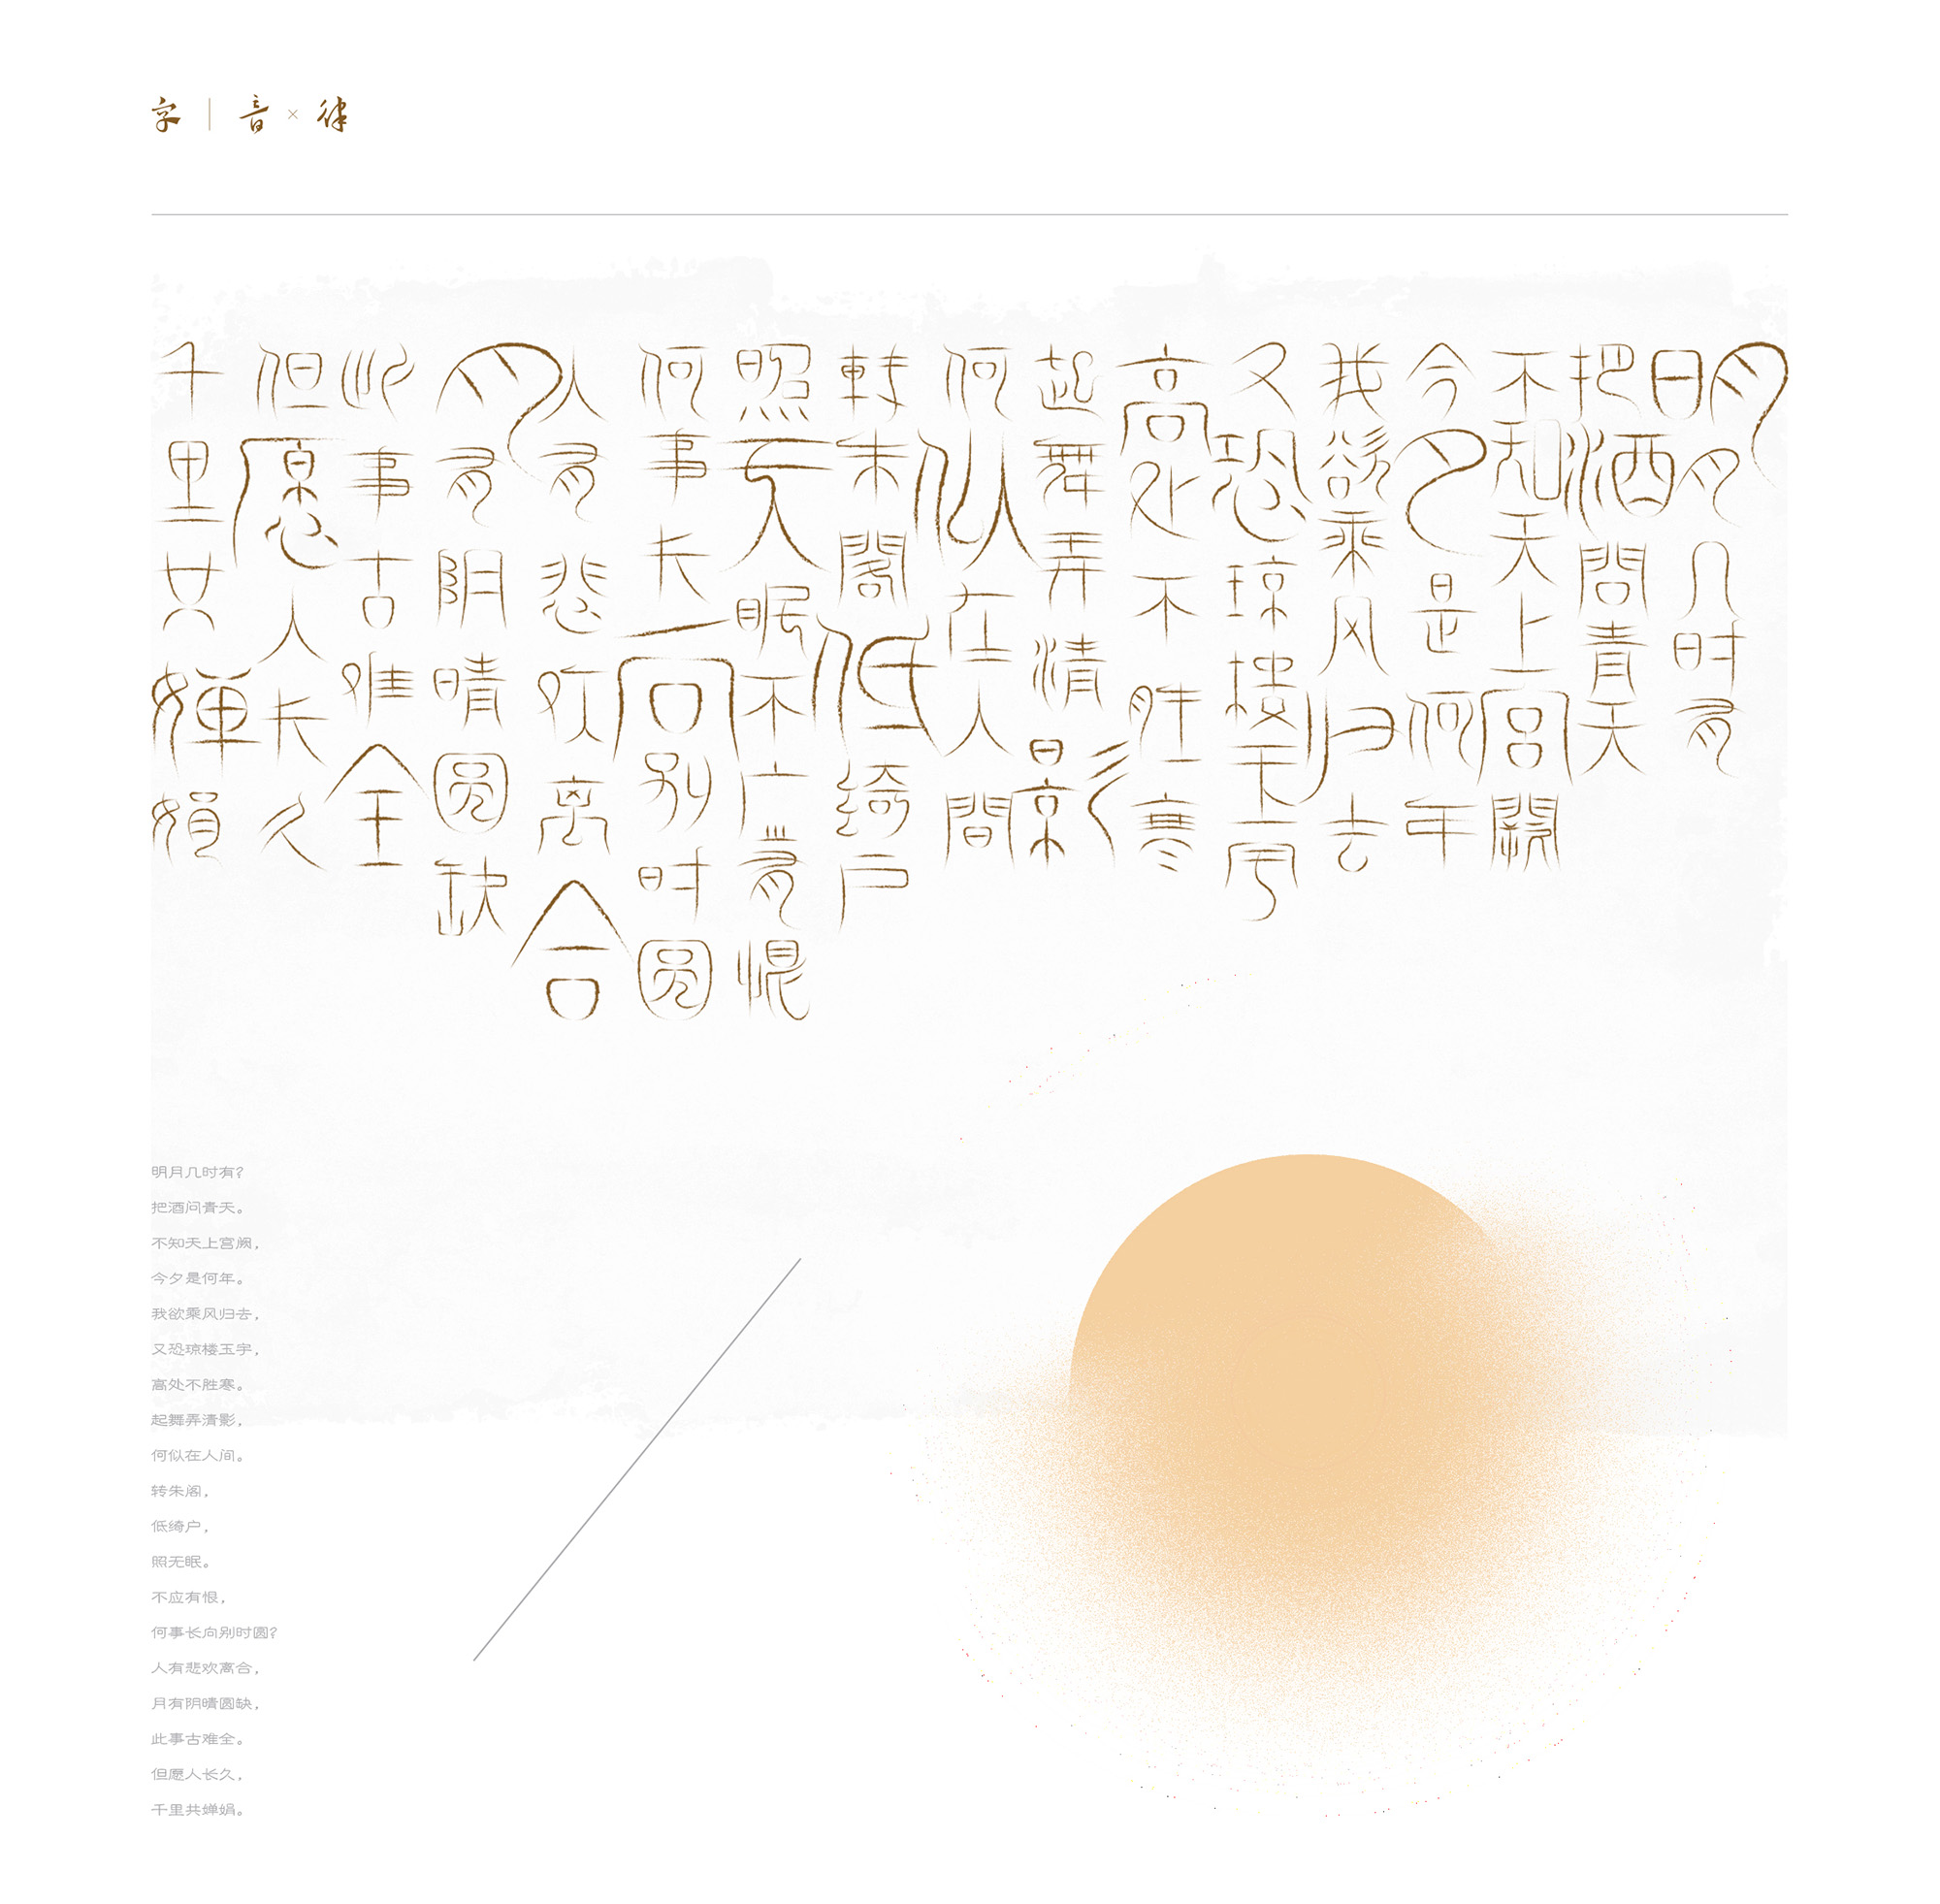 字｜音×律
明月几时有
把酒問青天
不知天上宫闕
今夕是何年
我欲乘风归去
又恐琼楼玉宇
高处不胜寒
起舞弄清影
何似在人間
转朱閣低绮户
照无眠不应有恨
何事长向别时圆
人有悲欢离合
月有阴晴圆缺
此事古难全
但愿人长久
千里共婵娟
明月几时有？
把酒问青天。
不知天上宫阙，
今夕是何年。
我欲乘风归去，
又恐琼楼玉宇，
高处不胜寒。
起舞弄清影，
何似在人间。
转朱阁，
低绮户，
照无眠。
不应有恨，
何事长向别时圆？
人有悲欢离合，
月有阴晴圆缺，
此事古难全。
但愿人长久，
千里共婵娟。